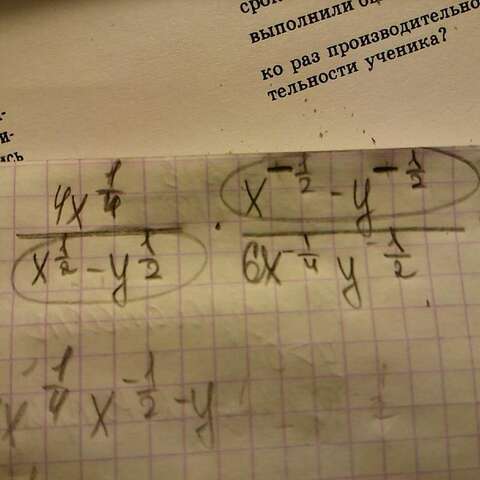 сро
выполнили оц
ко раз производительно
тельности ученика?
и-
сь
4x^{1/4} / (x^{1/2} - y^{1/2}) · (x^{-1/2} - y^{-1/2}) / (6x^{-1/4} y^{-1/2})
x^{1/4} x^{-1/2} - y